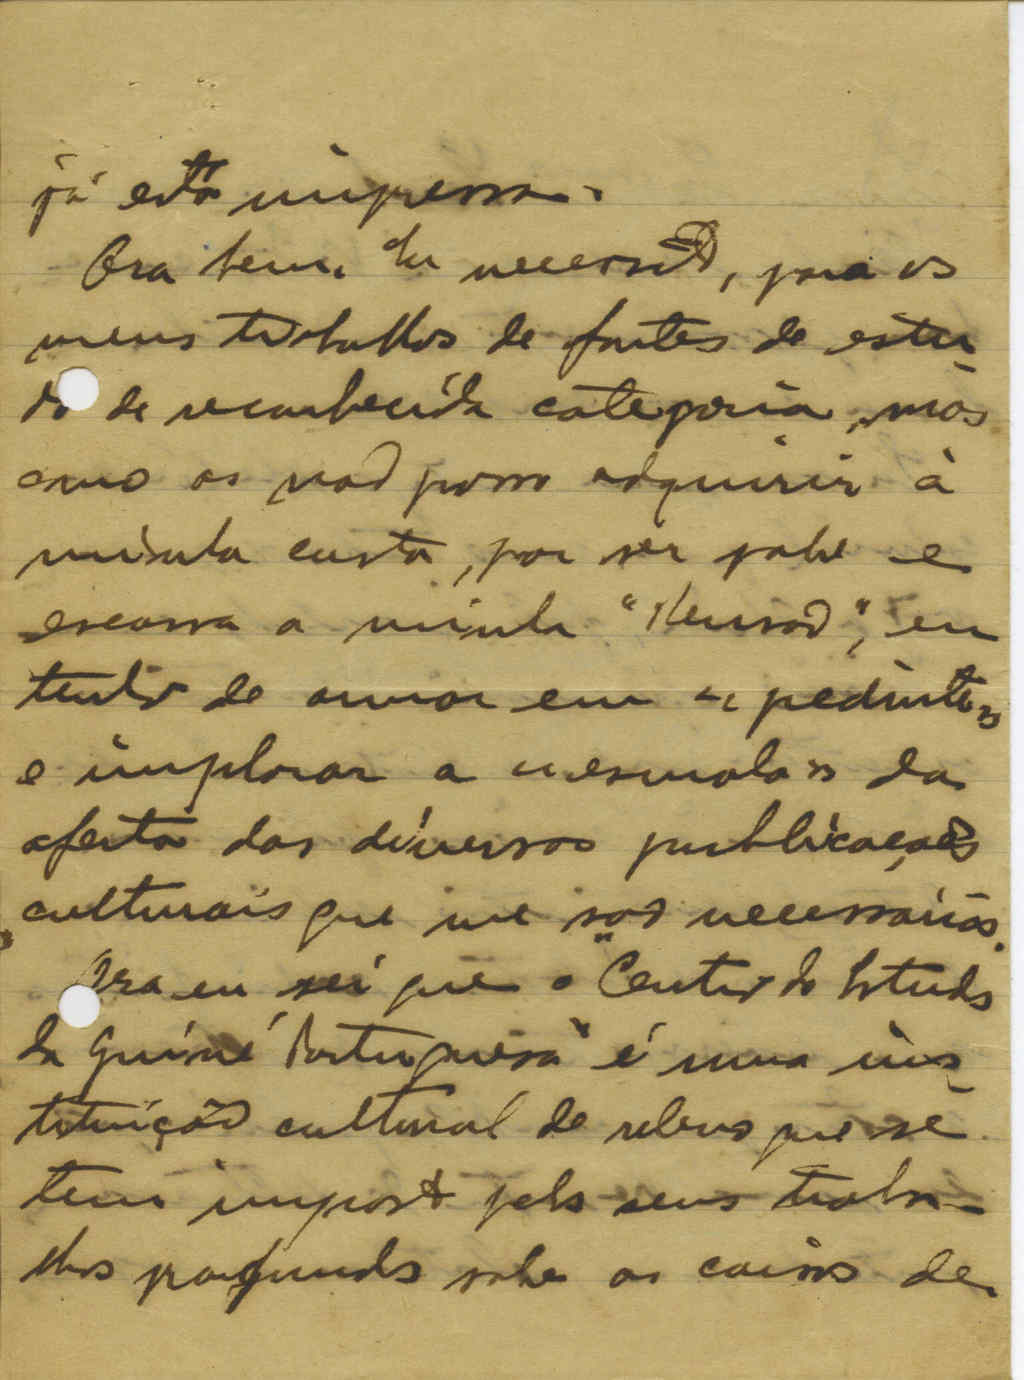 já está impressa.
Ora bem. Eu necessito, para os
meus trabalhos de fontes de estu-
do de reconhecida categoria, mas
como as não posso adquirir à
minha custa, por ser pobre e
escassa a minha "Pensão", eu
tenho de armar em "pedinte"
e implorar a "esmola" da
oferta das diversas publicações
culturais que me são necessárias.
Ora eu sei que o "Centro de Estudos
da Guiné Portuguesa" é uma ins-
tituição cultural de relevo que se
tem imposto pelos seus traba-
lhos profundos sobre as coisas de